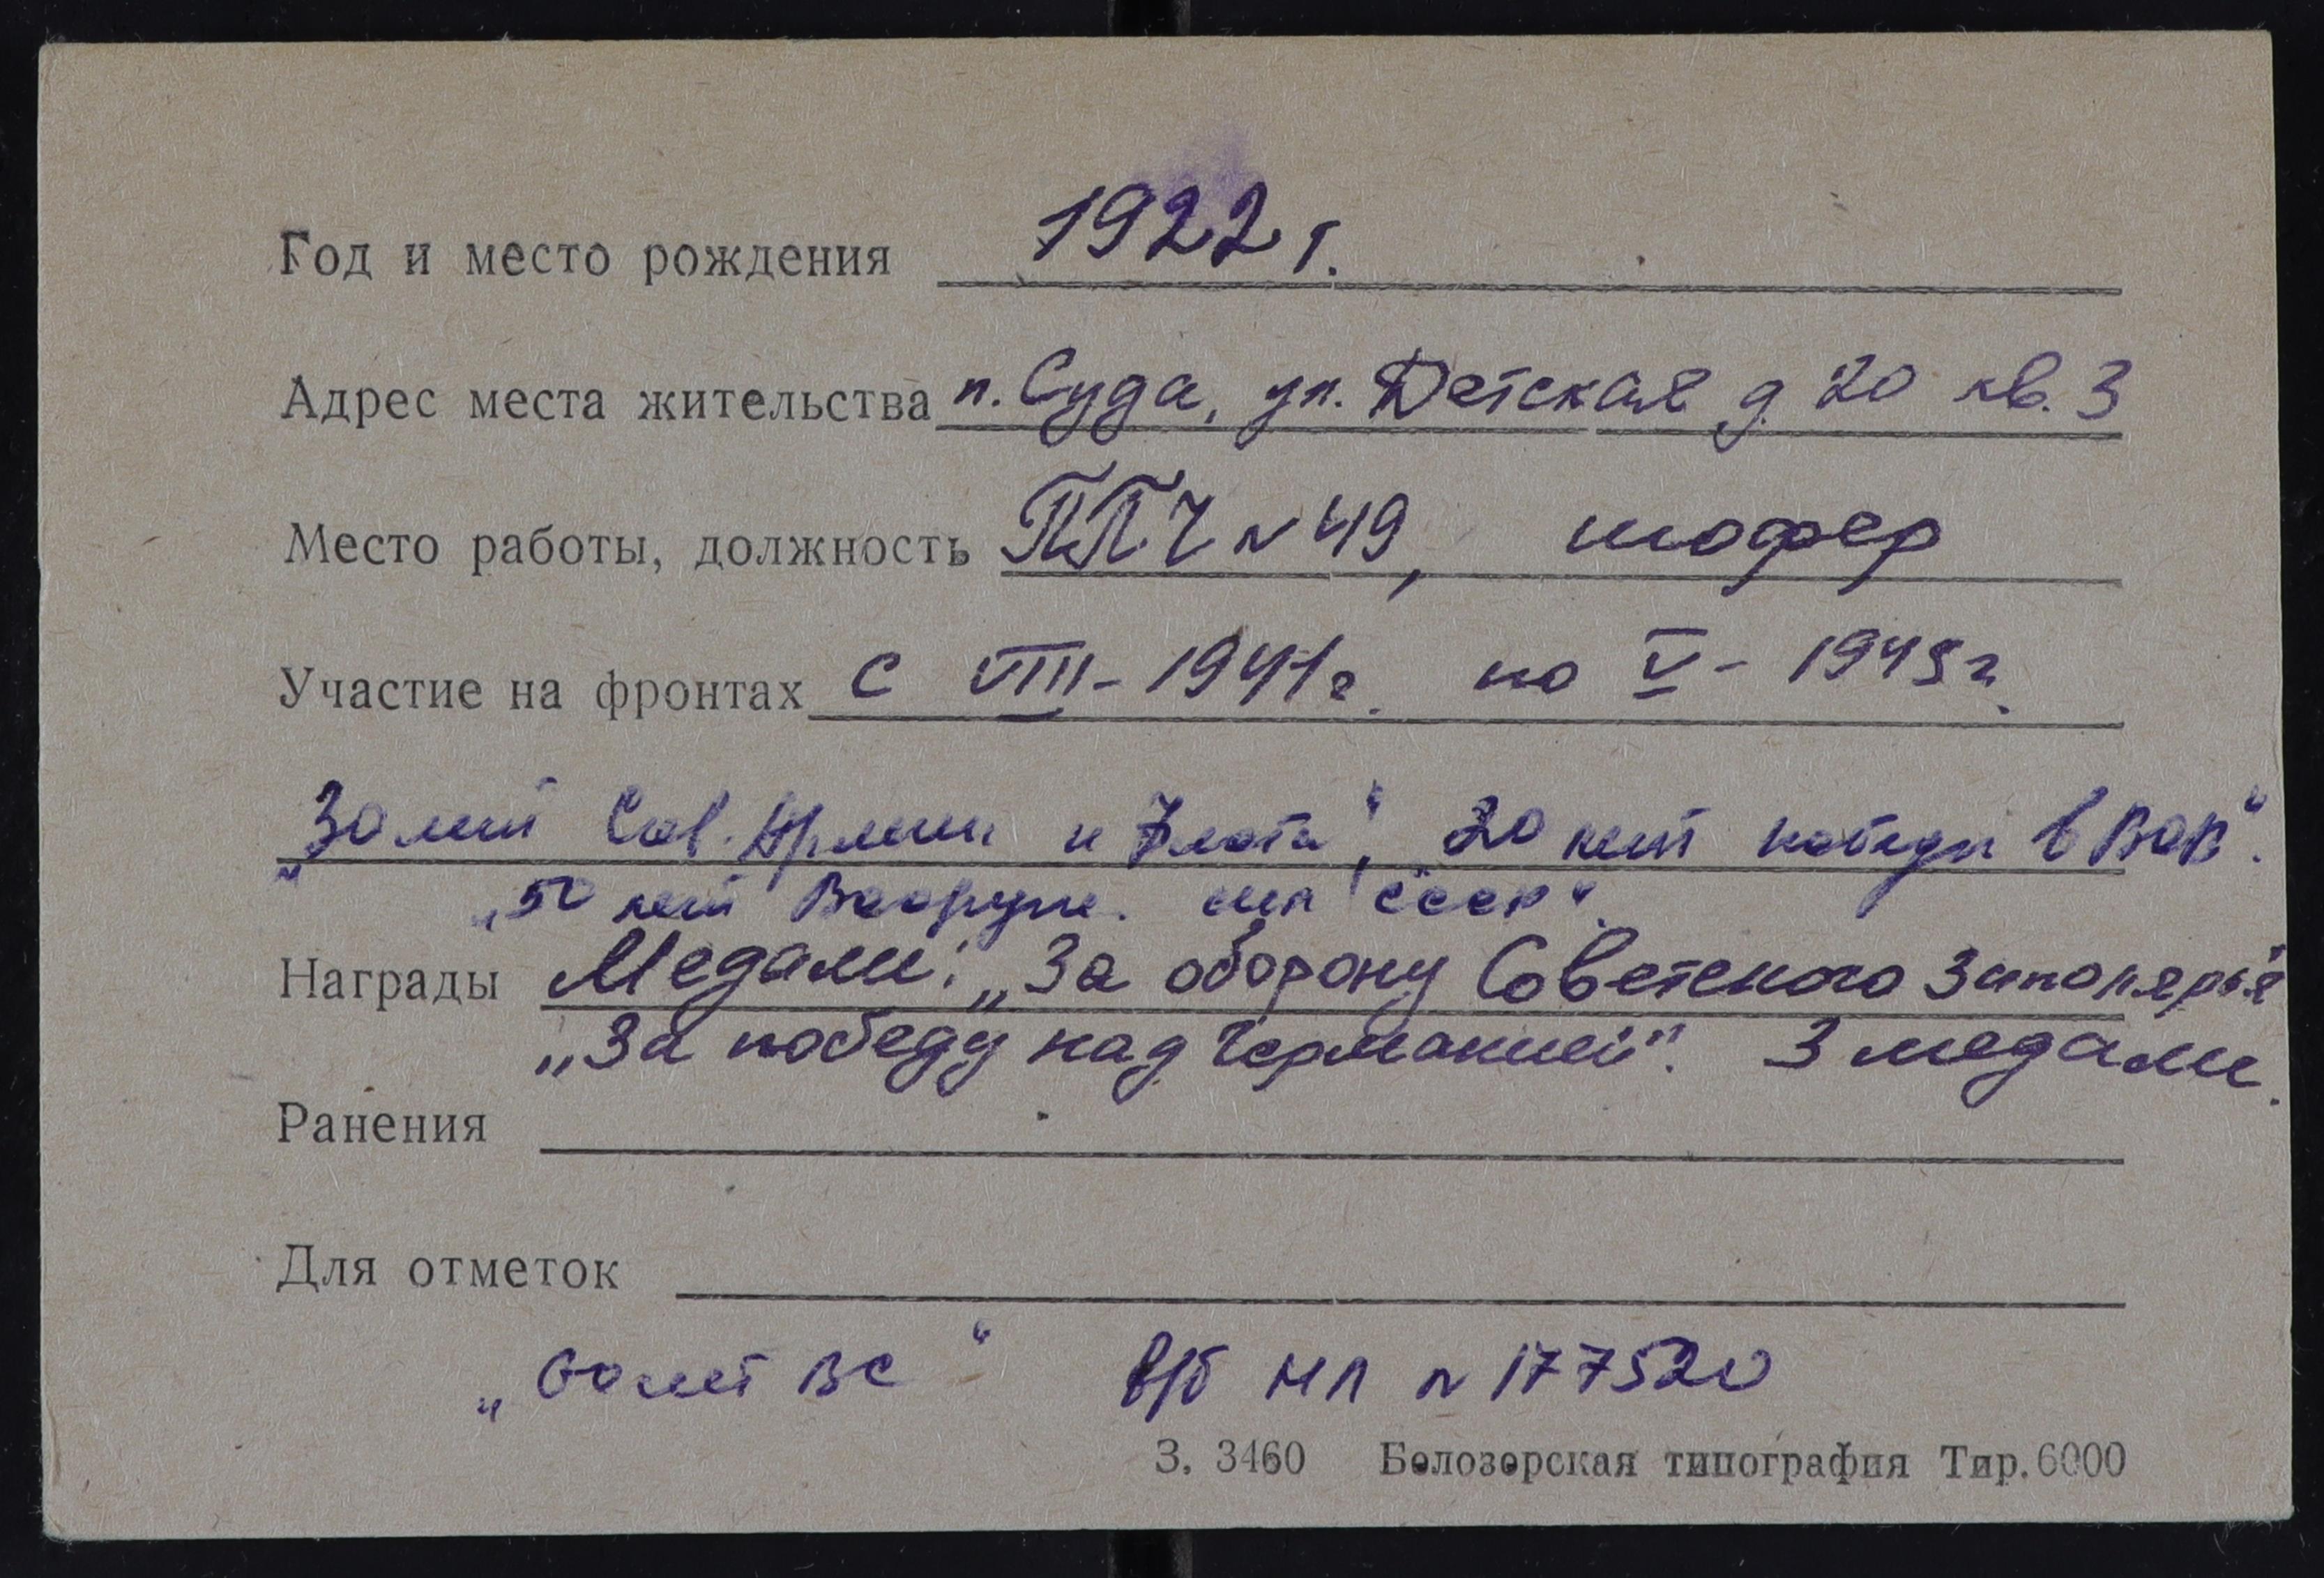 Год и место рождения 1922 г.
Адрес места жительства п. Суда, ул. Детская д. 20 кв. 3
Место работы, должность ППЧ N 49, шофер
Участие на фронтах с VIII - 1941 г. по V - 1945 г.
„30 лет Сов. Армии и Флота", 20 лет победы в ВОВ".
„50 лет Вооруж. сил СССР".
Награды Медали: „За оборону Советского Заполярья"
„За победу над Германией". 3 медали.
Ранения
Для отметок
„60 лет ВС" в/б МЛ N 177520
З. 3460 Белозерская типография Тир. 6000